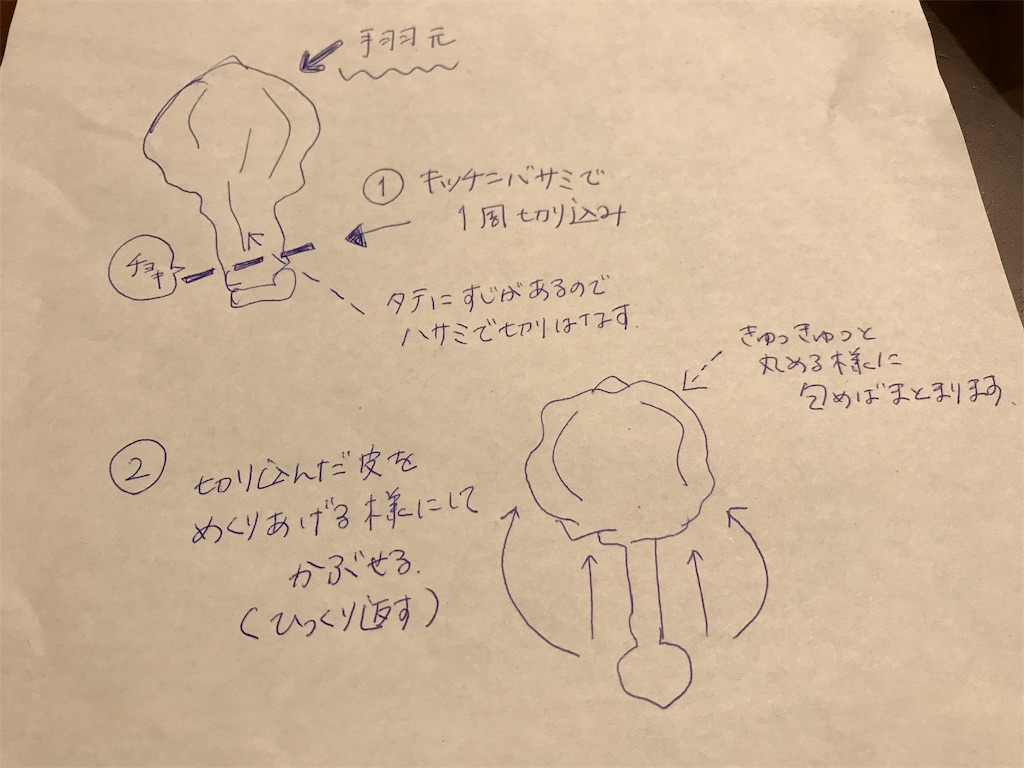 手羽元
① キッチンバサミで
1周切り込み
チョキ
タテにすじがあるので
ハサミで切りはなす.
きゅっきゅっと
丸める様に
包めばまとまります.
② 切り込んだ皮を
めくりあげる様にして
かぶせる.
(ひっくり返す)